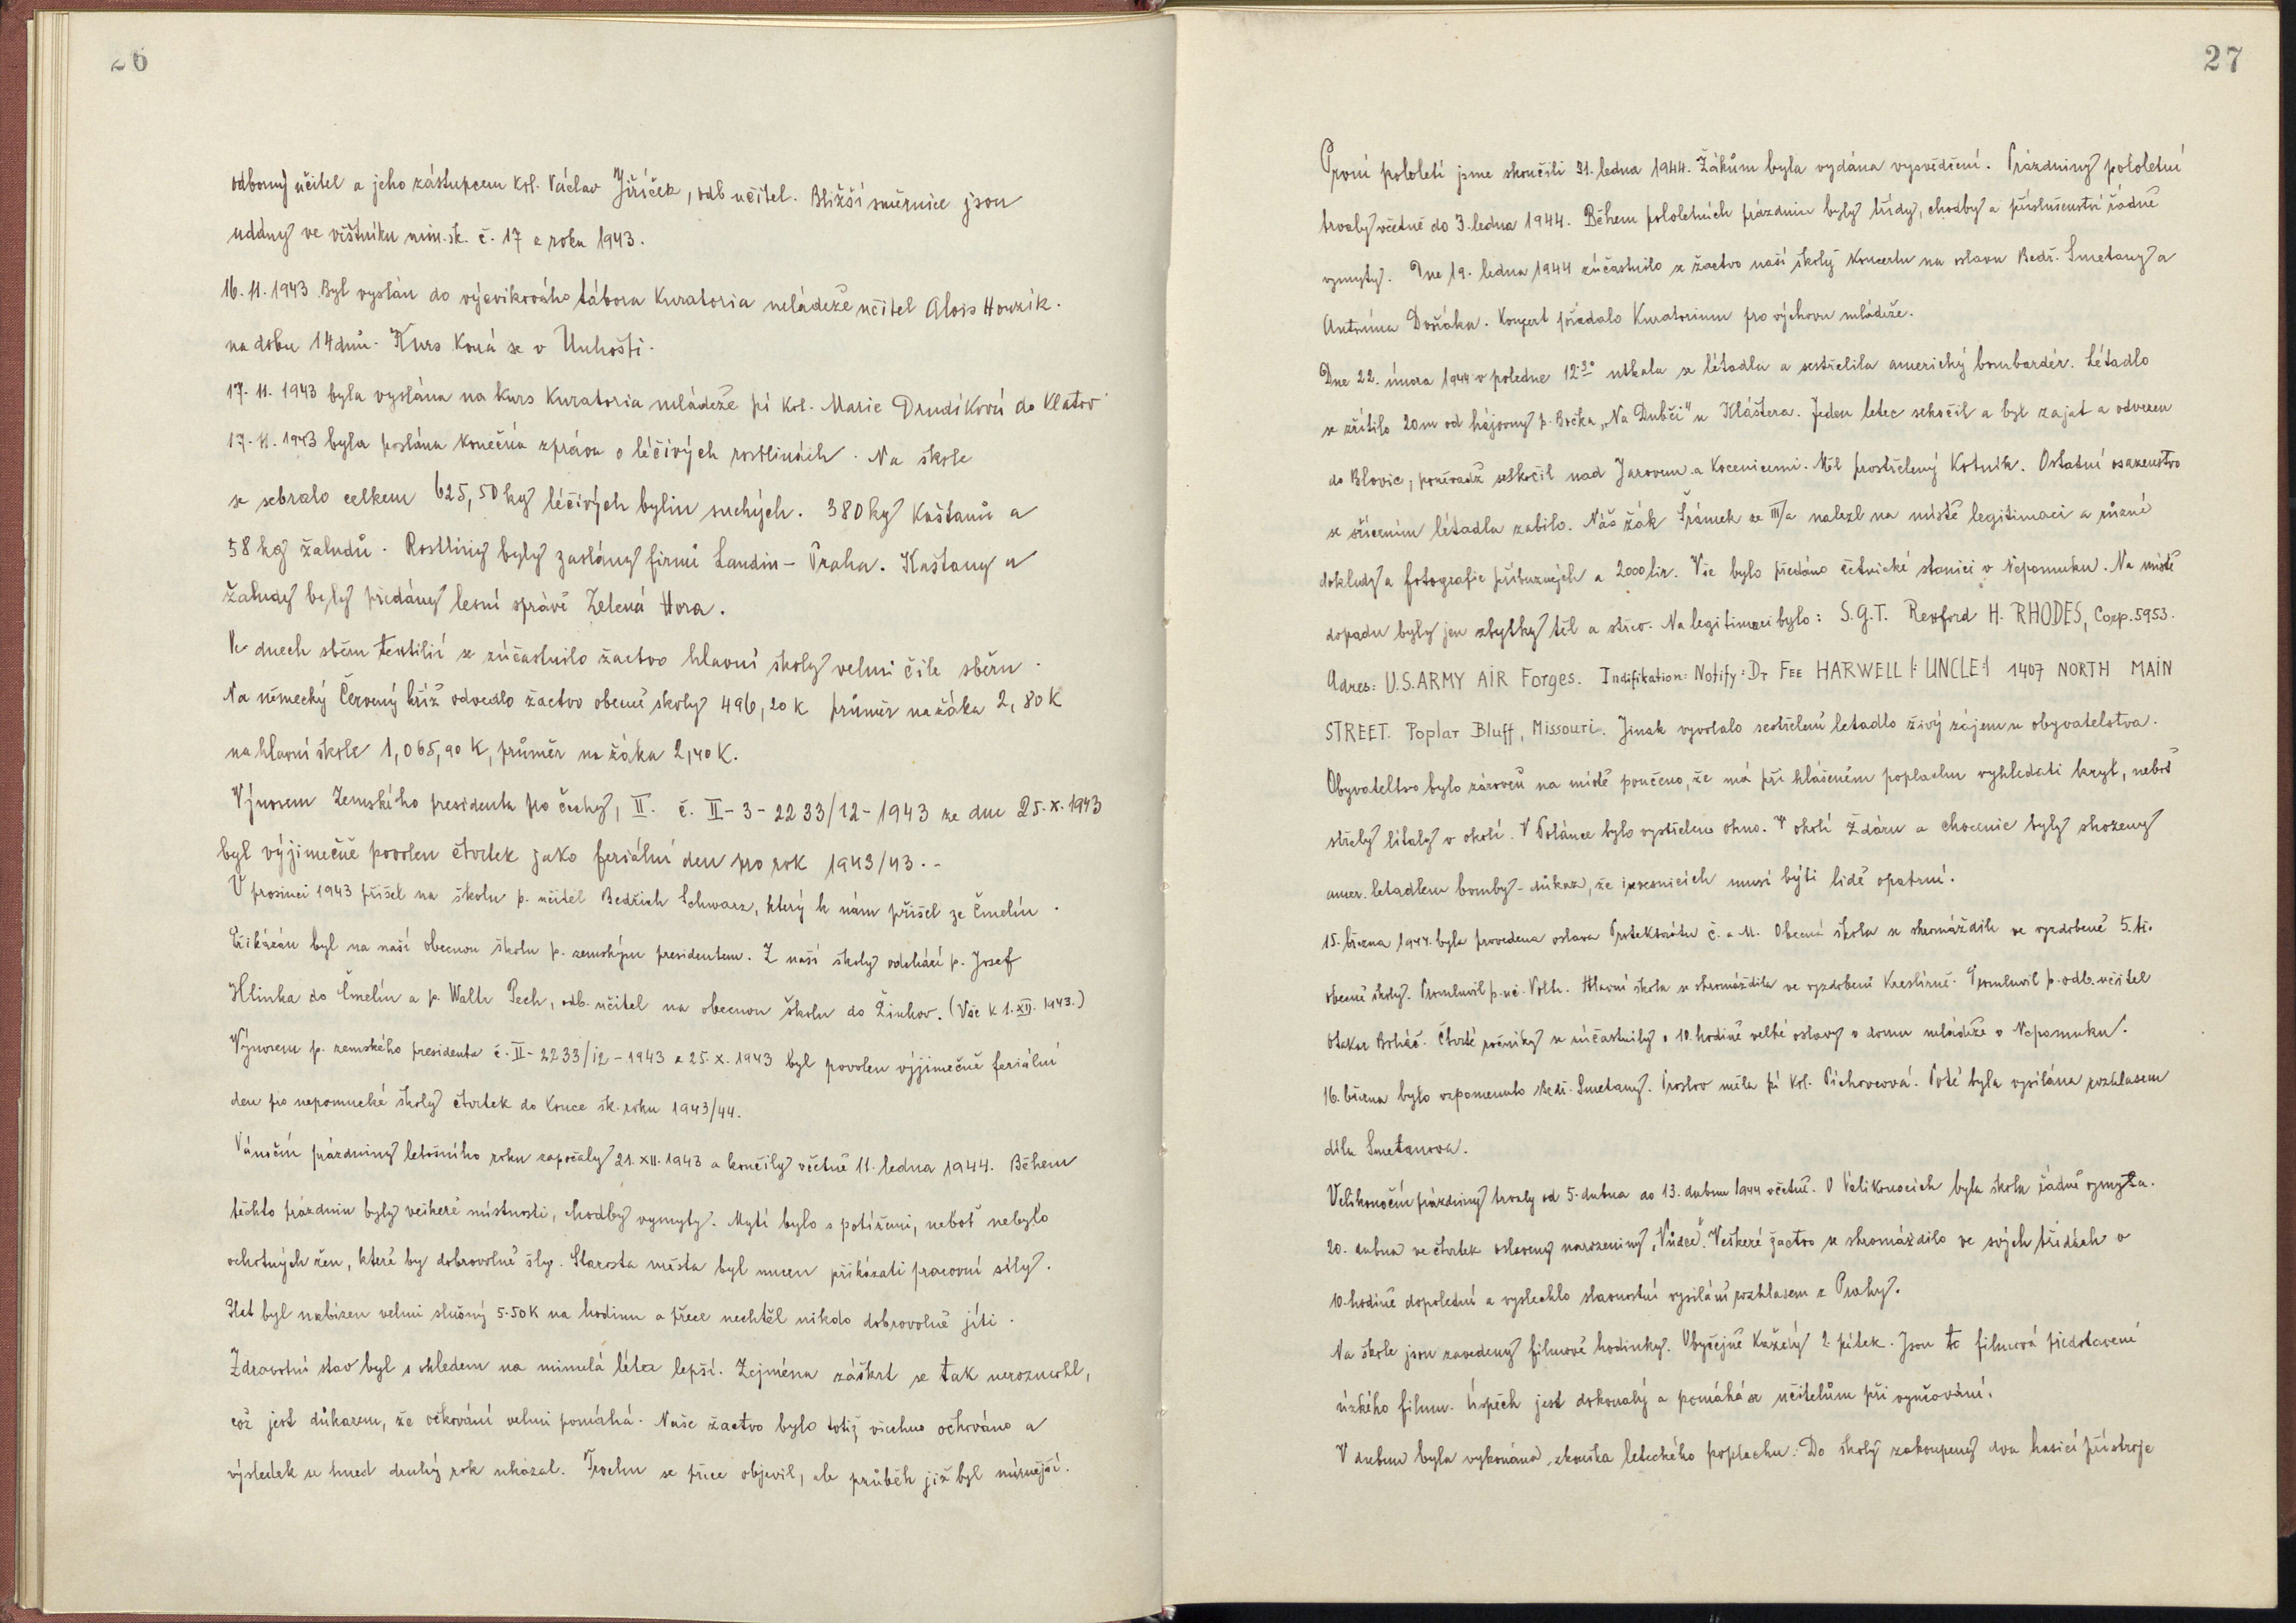 26
odborný učitel a jeho zástupcem kol. Václav Jiříček, odb učitel. Bližší směrnice jsou
uddny ve věstníku min. šk. č. 17 z roku 1943.
16. 11. 1943 Byl vyslán do výcvikového tábora Kuratoria mládeže učitel Alois Houzík.
na dobu 14 dnů. Kurs koná se v Unhošti.
17. 11. 1943 byla vyslána na kurs Kuratoria mládeže pí kol. Marie Drudíková do Klatov
17. 11. 1943 byla poslána konečná zpráva o léčivých rostlinách. Na škole
se sebralo celkem 625,50 kg léčivých bylin suchých. 380 kg kaštanů a
58 kg žaludů. Rostliny byly zaslány firmě Landin - Praha. Kaštany a
žaludy byly předány lesní správě Zelená Hora.
Ve dnech sběru textilií se zúčastnilo žactvo hlavní školy velmi čile sběru.
Na německý Červený kříž odvedlo žactvo obecné školy 496,20 K průměr na žáka 2,80 K
na hlavní škole 1,065,90 K, průměr na žáka 2,40 K.
Výnosem Zemského presidenta pro Čechy, II. č. II - 3 - 2233/12 - 1943 ze dne 25. X. 1943
byl výjimečně povolen čtvrtek jako feriální den pro rok 1943/43. -
V prosinci 1943 přišel na školu p. učitel Bedřich Schwarz, který k nám přišel ze Čmelín.
Přikázán byl na naší obecnou školu p. zemským presidentem. Z naší školy odchází p. Josef
Hlinka do Čmelín a p. Waltr Pech, odb. učitel na obecnou školu do Žinkov. (Vše k 1. XII. 1943.)
Výnosem p. zemského presidenta č. II - 2233/12 - 1943 z 25. X. 1943 byl povolen výjimečně feriální
den pro nepomucké školy čtvrtek do konce šk. roku 1943/44.
Vánoční prázdniny letošního roku započaly 21. XII. 1943 a končily včetně 11. ledna 1944. Během
těchto prázdnin byly veškeré místnosti, chodby vymyty. Mytí bylo s potížemi, neboť nebylo
ochotných žen, které by dobrovolně šly. Starosta města byl nucen přikázati pracovní síly.
Plat byl nabízen velmi slušný 5.50 K na hodinu a přece nechtěl nikdo dobrovolně jíti.
Zdravotní stav byl s ohledem na minulá létea lepší. Zejména záškrt se tak nerozmohl,
což jest důkazem, že očkování velmi pomáhá. Naše žactvo bylo totiž všechno očkováno a
výsledek se hned druhý rok ukázal. Trochu se přece objevil, ale průběh již byl mírnější.
27
První pololetí jsme skončili 31. ledna 1944. Žákům byla vydána vysvědčení. Prázdniny pololetní
trvaly včetně do 3. ledna 1944. Během pololetních prázdnin byly třídy, chodby a příslušenství řádně
vymyty. Dne 19. ledna 1944 zúčastnilo se žactvo naší školy koncertu na oslavu Bedř. Smetany a
Antonína Dvořáka. Koncert pořádalo Kuratorium pro výchovu mládeže.
Dne 22. února 1944 v poledne 12.30 utkala se létadla a sestřelila americký bombardér. Létadlo
se zřítilo 20m od hájovny p. Bočka „Na Dubčí" u Kláštera. Jeden letec seskočil a byl zajat a odvezen
do Blovic, poněvadž seskočil nad Jarovem a Kocenicemi. Měl prostřelený kotník. Ostatní osazenstvo
se zřícením létadla zabilo. Náš žák Šrámek ze III/a nalezl na místě legitimaci a různé
doklady a fotografie příbuzných a 2000 lir. Vše bylo předáno četnické stanici v Nepomuku. Na místě
dopadu byly jen zbytky těl a střev. Na legitimaci bylo: S.G.T. Rexford H. RHODES, Copp. 5953.
Adres: U.S. ARMY AIR Forges. Indifikation: Notify: Dr FEE HARWELL /: UNCLE :/ 1407 NORTH MAIN
STREET. Poplar Bluff, Missouri. Jinak vyvolalo sestřelené letadlo živý zájem u obyvatelstva.
Obyvateltvo bylo zároveň na místě poučeno, že má při hlášeném poplachu vyhledati kryt, neboť
střely lítaly v okolí. V Polánce bylo vystřeleno okno. V okolí Ždáru a Chocenic byly shozeny
amer. letadlem bomby - důkaz, že i vesnicích musí býti lidé opatrní.
15. března 1944. byla provedena oslava Protektorátu Č. a M. Obecná škola se shromáždila ve vyzdobené 5. tř.
obecné školy. Promluvil p. uč. Voltr. Hlavní škola se shromáždila ve vyzdobené kreslírně. Promluvil p. odb. učitel
Otakar Boháč. Čtvrté ročníky se zúčastnily o 10. hodině velké oslavy v domu mládeže v Nepomuku.
16. března bylo vzpomenuto Bedř. Smetany. Proslov měla pí kol. Píchovcová. Poté byla vysílána rozhlasem
díla Smetanova.
Velikonoční prázdniny trvaly od 5. dubna do 13. dubna 1944 včetně. O Velikonocích byla škola řádně vymyta.
20. dubna ve čtvrtek oslaveny narozeniny „Vůdce". Veškeré žactvo se shromáždilo ve svých třídách v
10. hodině dopolední a vyslechlo slavnostní vysílání rozhlasem z Prahy.
Na škole jsou zavedeny filmové hodinky. Obyčejně každý 2. pátek. Jsou to filmová představení
úzkého filmu. Úspěch jest dokonalý a pomáhá se učitelům při vyučování.
V dubnu byla vykonána zkouška leteckého poplachu. Do školy zakoupeny dva hasicí přístroje